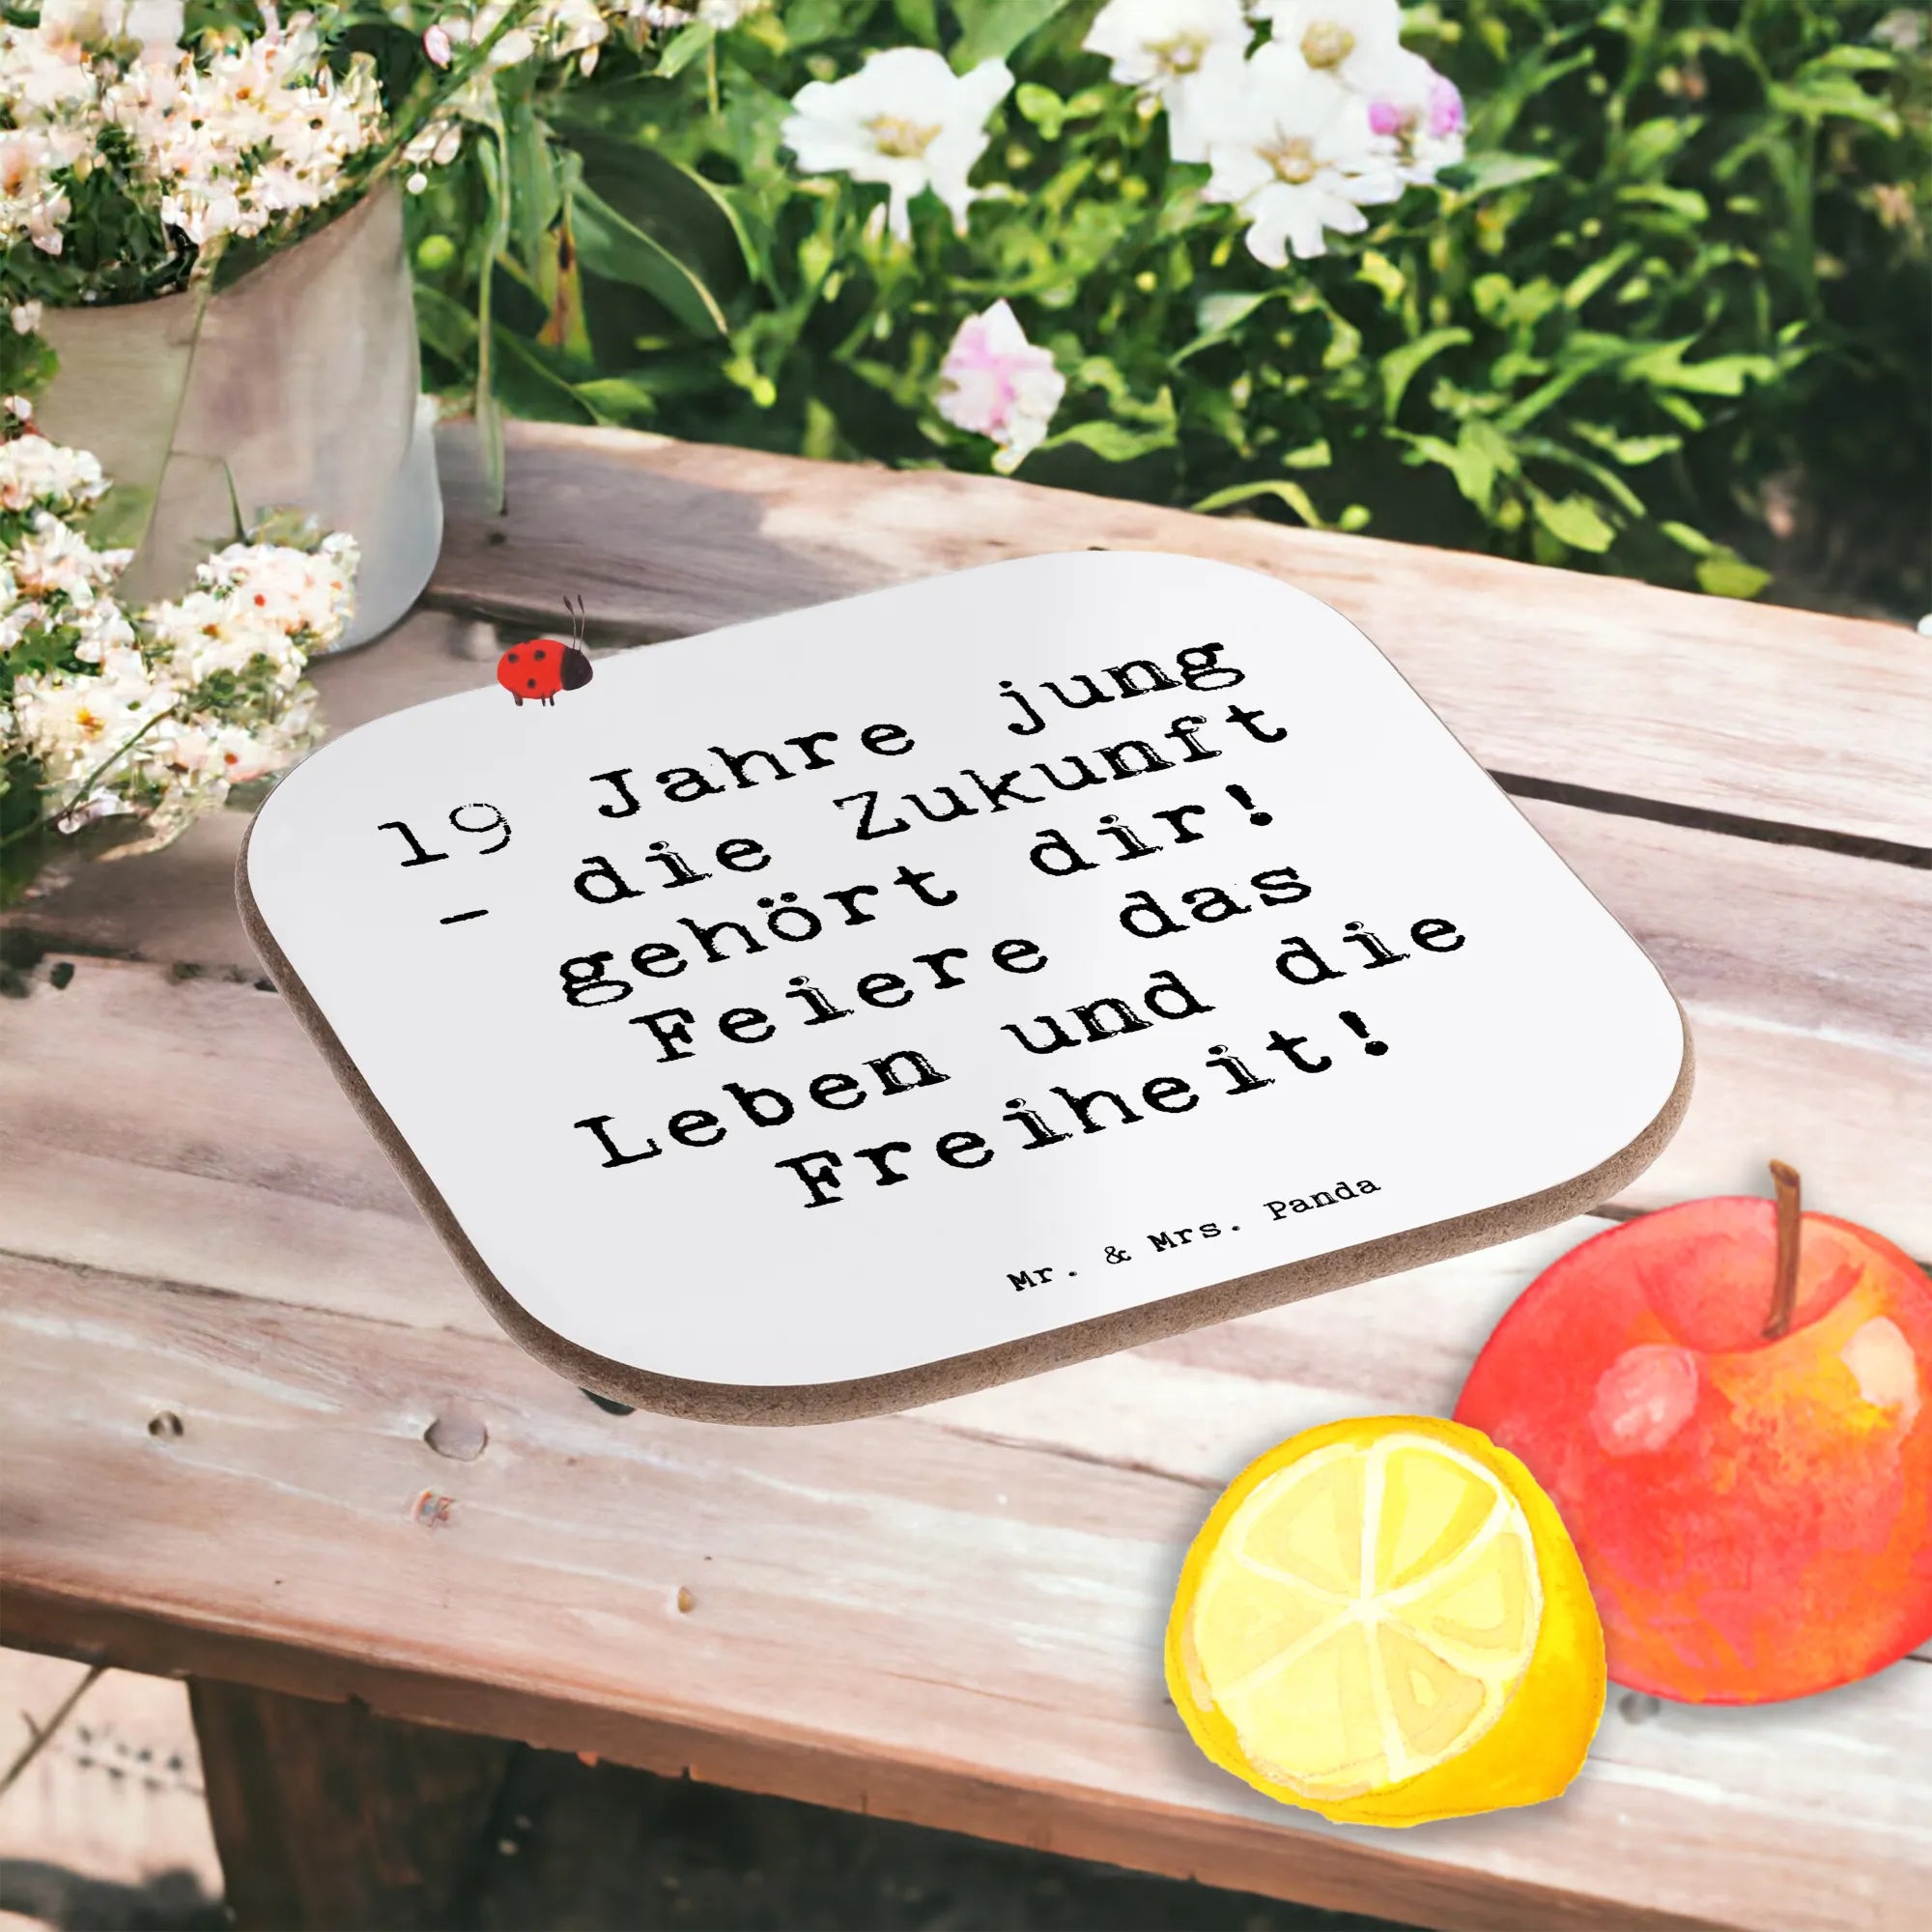 19 Jahre jung
- die Zukunft
gehört dir!
Feiere das
Leben und die
Freiheit!
Mr. & Mrs. Panda